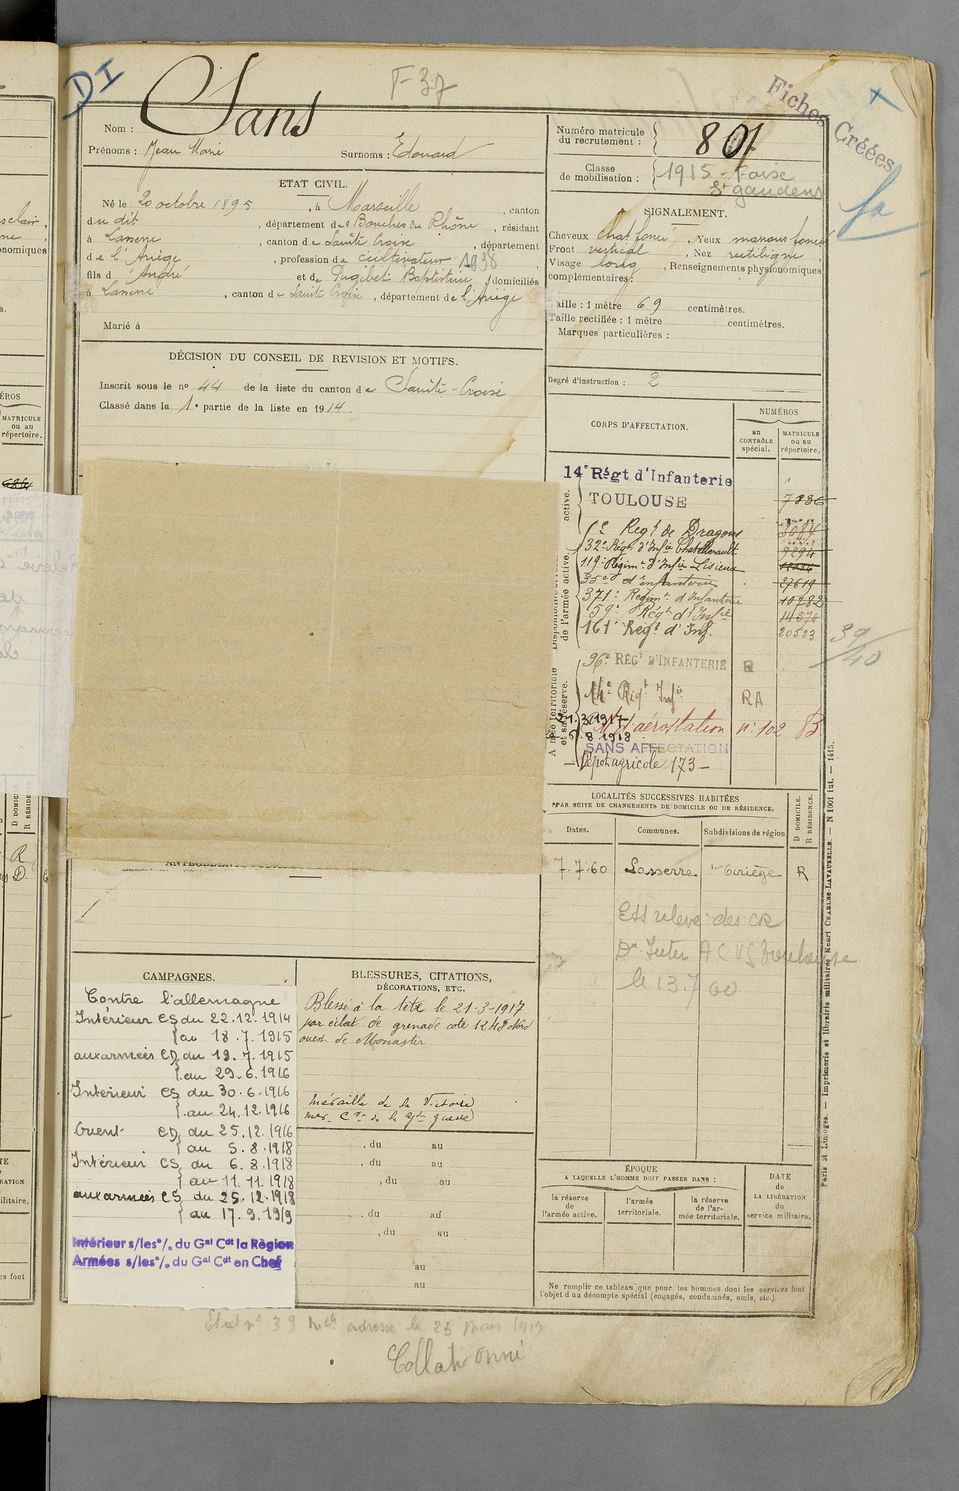 DI
F-37
Fiches Créées
Nom : Sans
Prénoms : Jean Marie Surnoms : Edouard
Numéro matricule du recrutement : 801
Classe de mobilisation : 1915 - Foix
St gaudens
ETAT CIVIL.
Né le 20 octobre 1895, à Marseille, canton
du dit, département des Bouches du Rhône, résidant
à Lasserre, canton de Sainte Croix, département
de l'Ariège, profession de cultivateur 1938
fils d'André et de Pugibet Baptistine, domiciliés
à Lasserre, canton de Sainte Croix, département de l'Ariège
Marié à
SIGNALEMENT.
Cheveux chat foncé, Yeux marrons foncé
Front vertical, Nez rectiligne
Visage long, Renseignements physionomiques
complémentaires :
Taille : 1 mètre 69 centimètres.
Taille rectifiée : 1 mètre centimètres.
Marques particulières :
Degré d'instruction : 2
DÉCISION DU CONSEIL DE REVISION ET MOTIFS.
Inscrit sous le n° 44 de la liste du canton de Sainte-Croix
Classé dans la 1e partie de la liste en 1914.
CORPS D'AFFECTATION.
NUMÉROS
au CONTRÔLE spécial.
MATRICULE ou au répertoire.
14e Régt d'Infanterie
TOULOUSE
Regt de Dragons
32e Régt d'Infie Chatellerault 9294
119e Régim. d'Infie Lisieux
35e d'infanterie 27619
371e Regimt d'Infanterie 10782
59e Régt d'Infie
161e Régt d'Inf. 20523
96e RÉGT D'INFANTERIE R
14e Régt Infie RA
21.3.1917
6.8.1918
aérostation n° 102 B
SANS AFFECTATION
- Dépot agricole 173 -
39/40
LOCALITÉS SUCCESSIVES HABITÉES
PAR SUITE DE CHANGEMENTS DE DOMICILE OU DE RÉSIDENCE.
Dates. Communes. Subdivisions de région D DOMICILE. R RÉSIDENCE.
7.7.60 Lasserre Ariège R
Ett relevé des CR
Dr Inter A C VG Toulouse
le 13.7.60
CAMPAGNES.
Contre l'allemagne
Intérieur CS du 22.12.1914
au 18.7.1915
aux armées CD du 19.7.1915
au 29.6.1916
Intérieur CS du 30.6.1916
au 24.12.1916
Orient CD du 25.12.1916
au 5.8.1918
Intérieur CS du 6.8.1918
au 11.11.1918
aux armées CS du 25.12.1918
au 17.9.1919
Intérieur s/les°/. du Gal Cdt la Région
Armées s/les°/. du Gal Cdt en Chef
BLESSURES, CITATIONS,
DÉCORATIONS, ETC.
Blessé à la tête le 21-3-1917
par éclat de grenade cote 1248 Nord
ouest de Monastir
Médaille de la Victoire
, du au
, du au
, du au
, du au
, du au
au
au
ÉPOQUE
A LAQUELLE L'HOMME DOIT PASSER DANS :
la réserve de l'armée active.
l'armée territoriale.
la réserve de l'armée territoriale.
DATE de LA LIBÉRATION du service militaire.
Ne remplir ce tableau que pour les hommes dont les services font
l'objet d'un décompte spécial (engagés, condamnés, omis, etc.).
Paris et Limoges. — Imprimerie et librairie militaires Henri CHARLES-LAVAUZELLE. — N 1001 int. — 1415.
Collationné